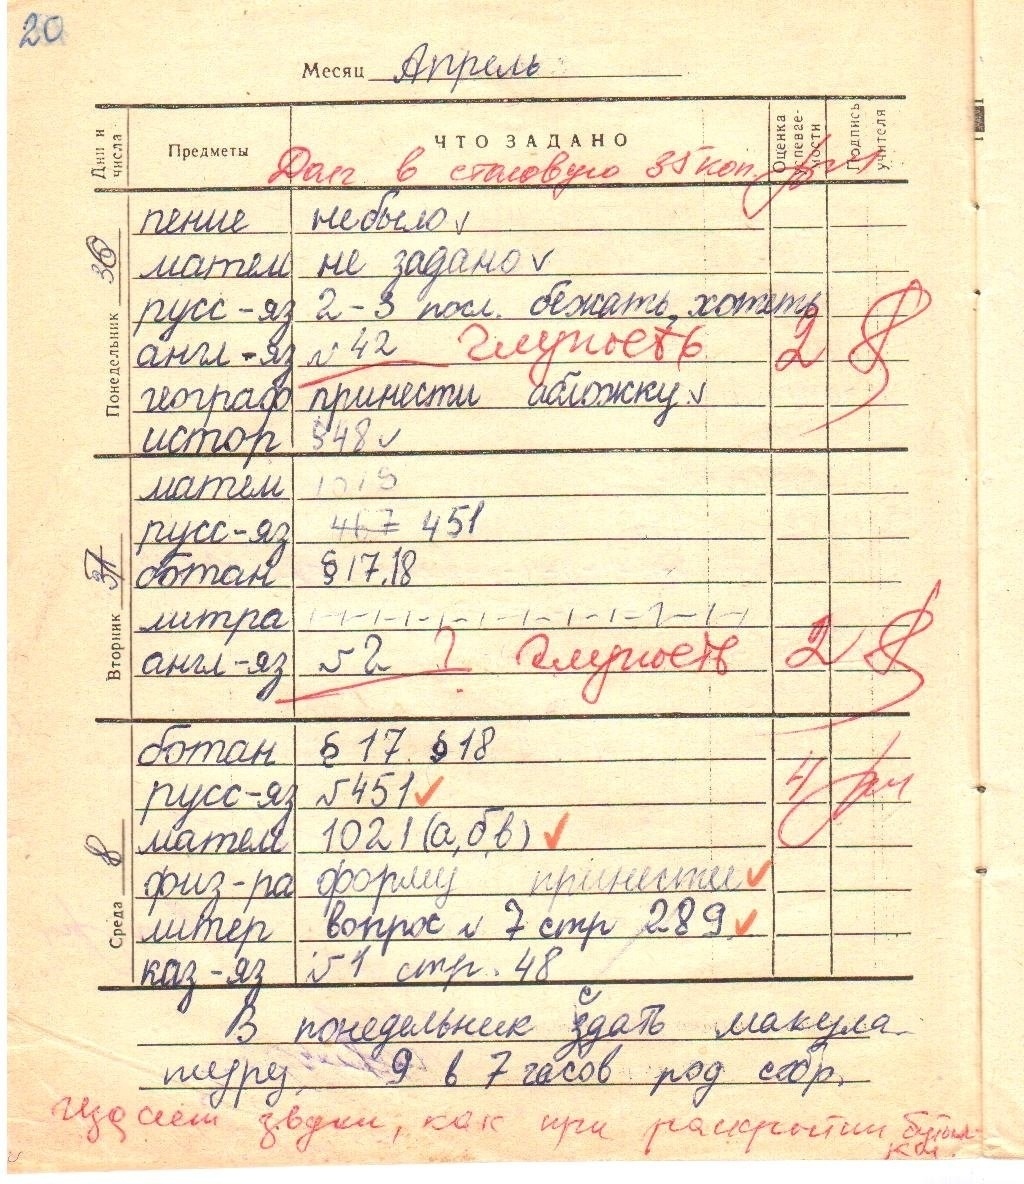 20
Месяц Апрель
Дни и числа Предметы ЧТО ЗАДАНО Оценка успеваемости Подпись учителя
Долг в столовую 35 коп.
Понедельник
пение не было
матем не задано
русс-яз 2-3 посл. бежать, хотеть
англ-яз №42 Глупость 2
географ принести абложку
истор §48
Вторник
матем 1019
русс-яз 467 451
ботан §17.18
литра
англ-яз №2 ? Глупость 2
Среда 8
ботан §17. §18
русс-яз №451 4
матем 1021 (а,б,в)
физ-ра форму принести
литер вопрос № 7 стр 289
каз-яз №1 стр. 48
В понедельник сдать макула-
туру, 9 в 7 часов род собр.
Издает звуки, как при раскрытии бутыл-
ки.